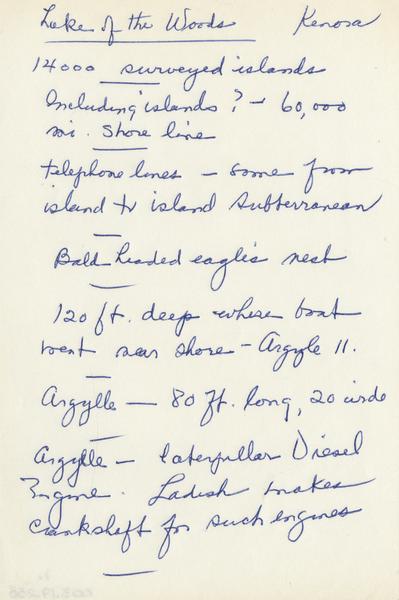 Lake of the Woods Kenora
14000 surveyed islands
Including islands? - 60,000
mi. shore line
telephone lines - some from
island to island subterranean
Bald-headed eagle's nest
120 ft. deep where boat
went near shore - Argyle II.
Argylle - 80 ft. long, 20 wide
Argylle - Caterpillar Diesel
Engine. Ladish makes
crankshaft for such engines